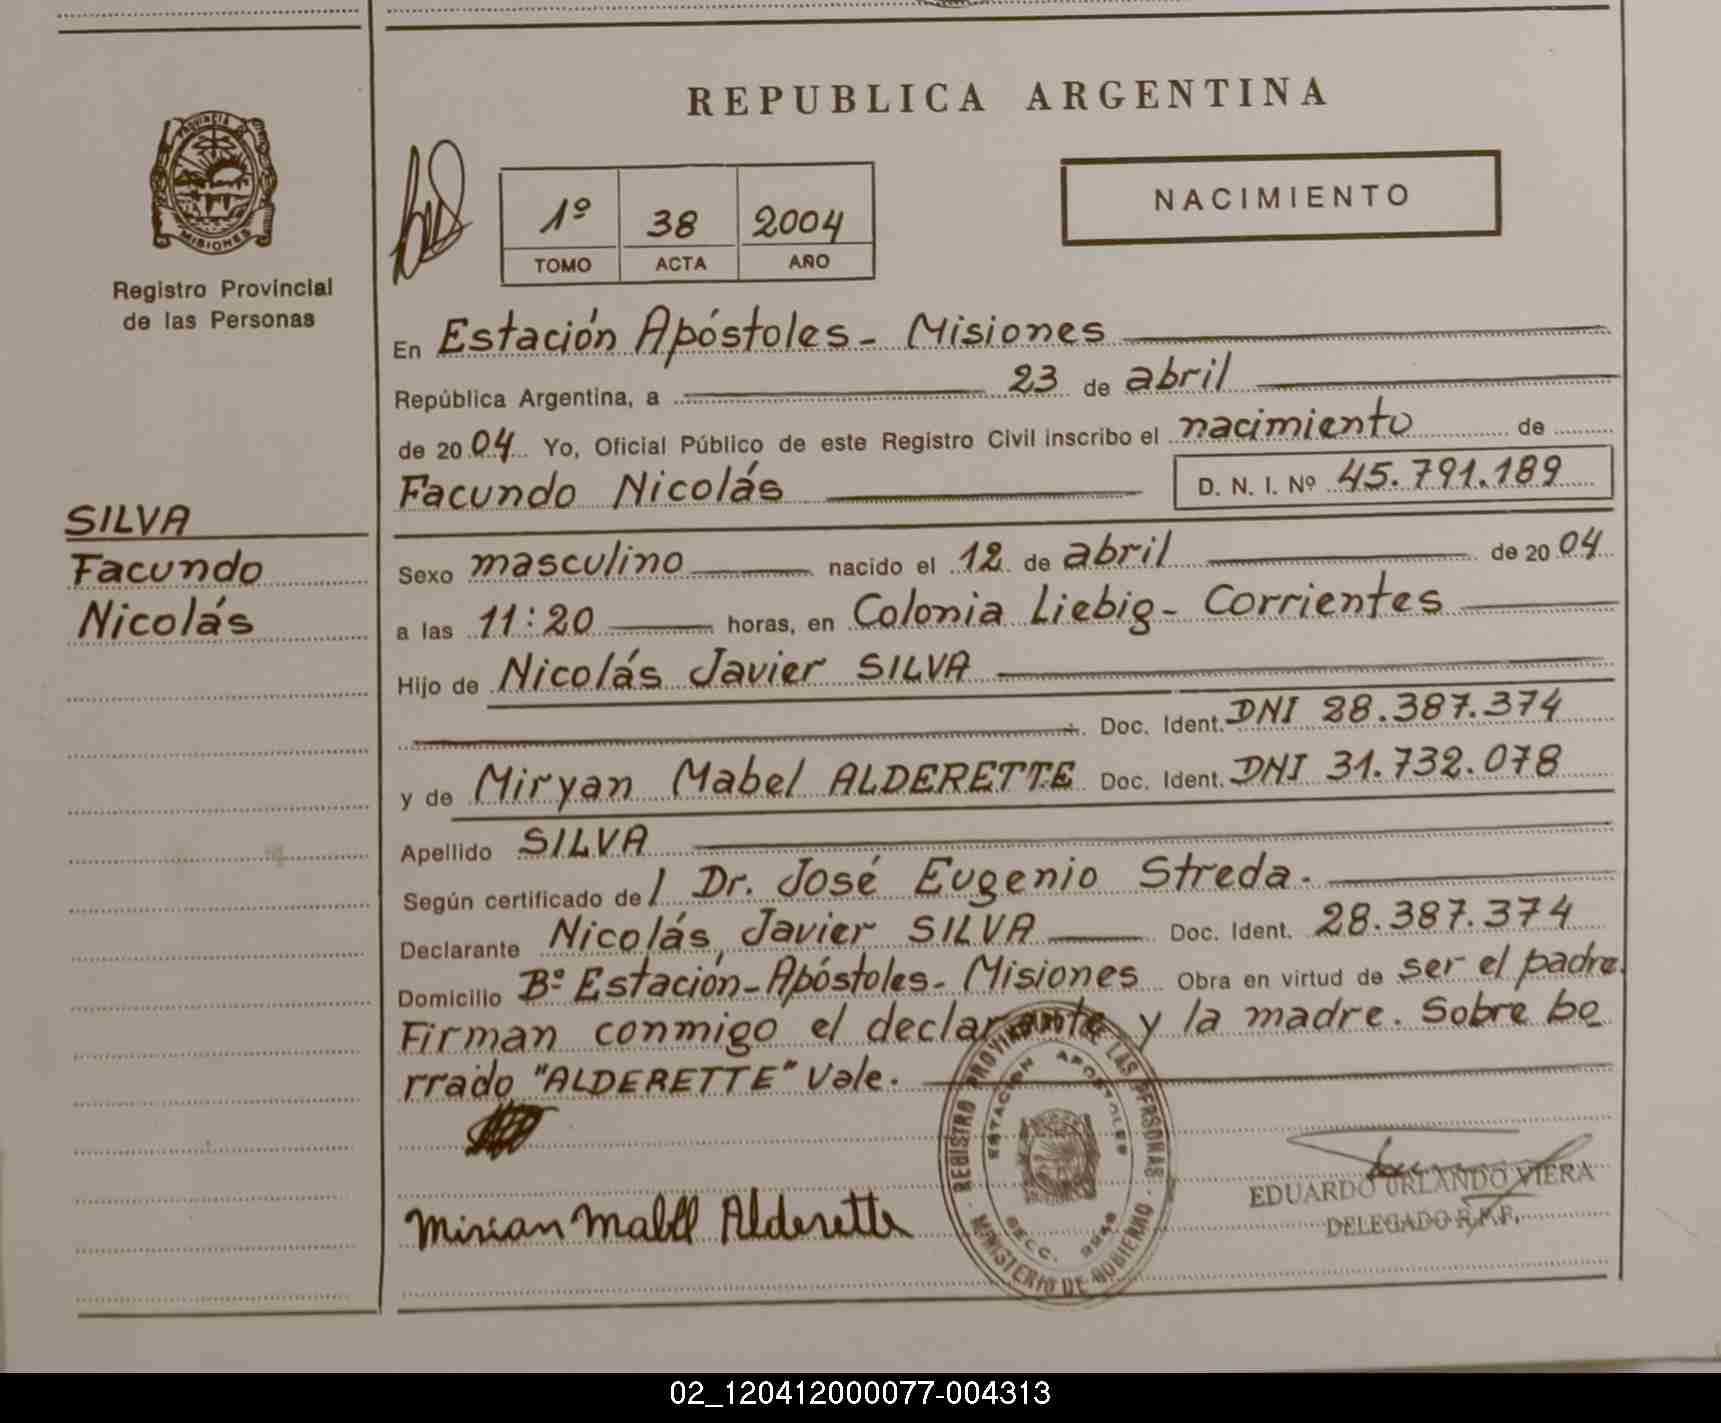 REPUBLICA ARGENTINA
PROVINCIA DE
MISIONES
Registro Provincial
de las Personas
1º 38 2004
TOMO ACTA AÑO
NACIMIENTO
En Estación Apóstoles - Misiones
República Argentina, a 23 de abril
de 2004 Yo, Oficial Público de este Registro Civil inscribo el nacimiento de
Facundo Nicolás D. N. I. Nº 45.791.189
SILVA
Facundo
Nicolás
Sexo masculino nacido el 12 de abril de 2004
a las 11:20 horas, en Colonia Liebig - Corrientes
Hijo de Nicolás Javier SILVA
Doc. Ident. DNI 28.387.374
y de Miryan Mabel ALDERETTE Doc. Ident. DNI 31.732.078
Apellido SILVA
Según certificado de l Dr. José Eugenio Streda.
Declarante Nicolás Javier SILVA Doc. Ident. 28.387.374
Domicilio Bº Estación - Apóstoles - Misiones Obra en virtud de ser el padre.
Firman conmigo el declarante y la madre. Sobre bo
rrado "ALDERETTE" Vale.
REGISTRO PROVINCIAL DE LAS PERSONAS
ESTACION APOSTOLES
SECC.
MINISTERIO DE GOBIERNO
Mirian Mabel Alderette
EDUARDO ORLANDO VIERA
DELEGADO R.P.P.
02_120412000077-004313